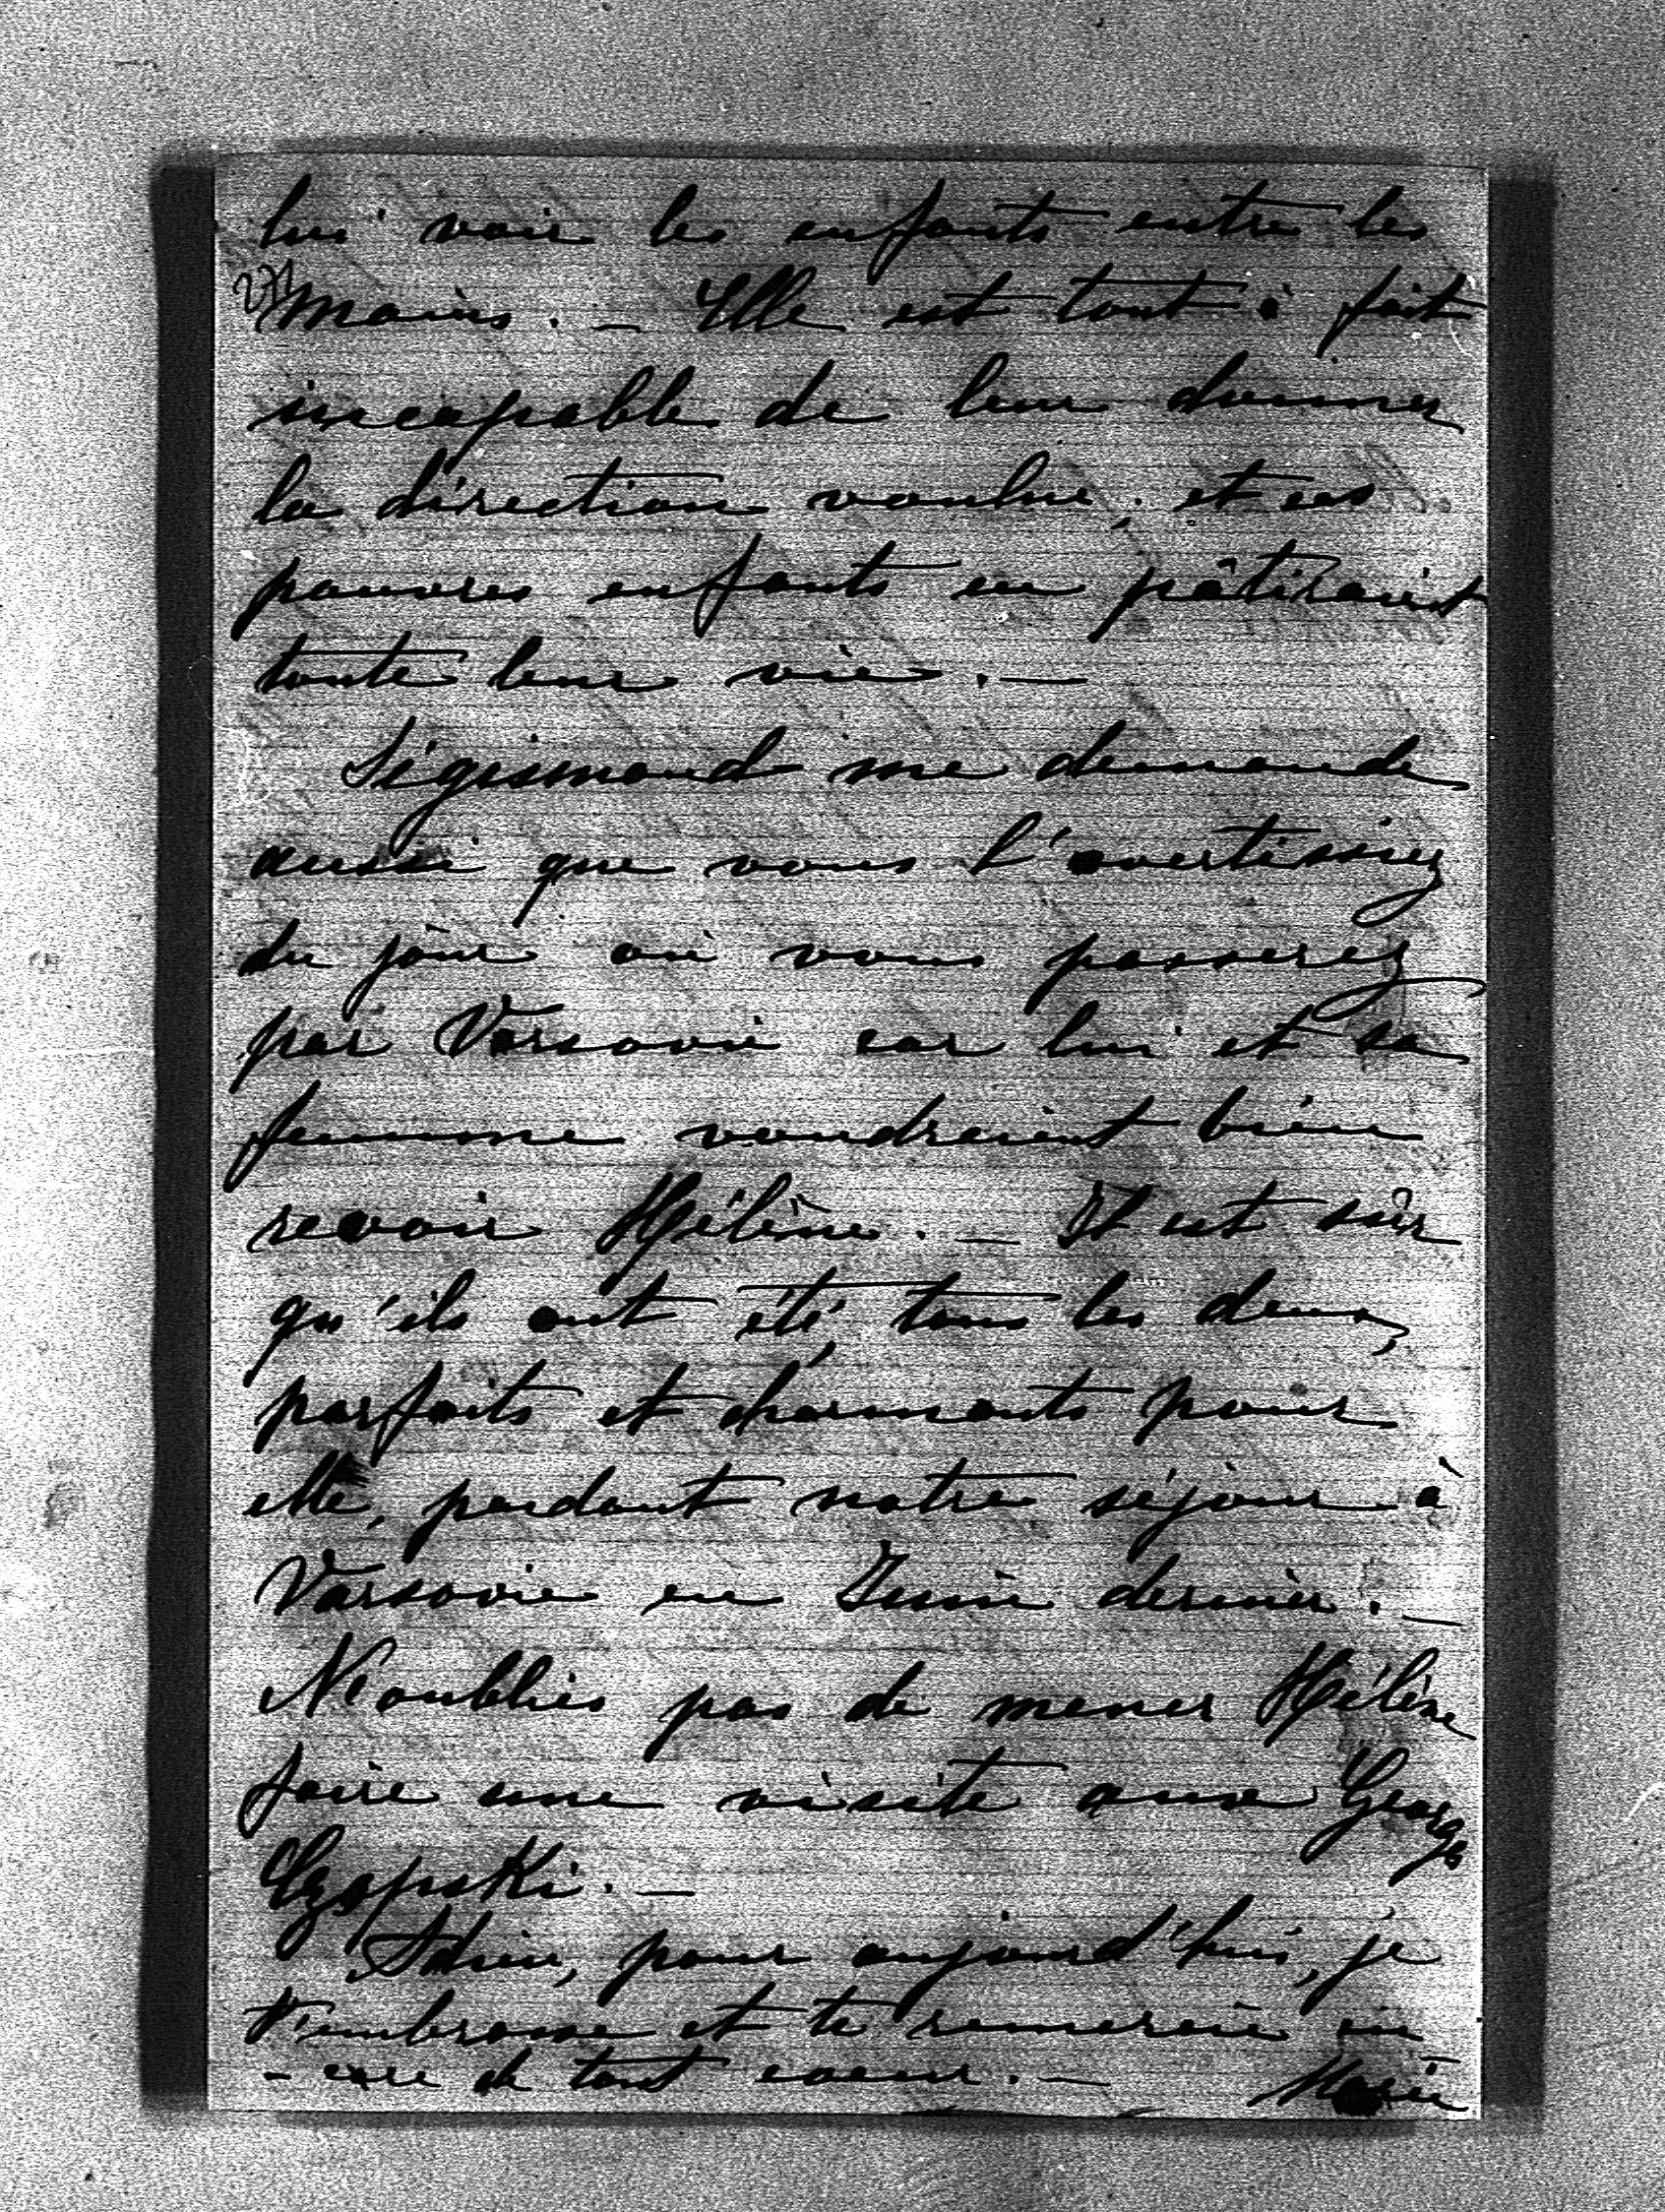 lui voir les enfants entre les
mains. — Elle est tout à fait
incapable de leur donner
la direction voulue, et ces
pauvres enfants en pâtiraient
toute leur vie. —
Sigismond me demande
aussi que vous l'avertissiez
du jour où vous passerez
par Varsovie car lui et sa
femme voudraient bien
revoir Hélène. — Il est sûr
qu'ils ont été, tous les deux,
parfaits et charmants pour
elle, pendant notre séjour à
Varsovie en Juin dernier. —
N'oublies pas de mener Hélène
faire une visite aux George
Czapski. —
Adieu, pour aujourd'hui, je
t'embrasse et te remercie en
- core de tout coeur. — Marie